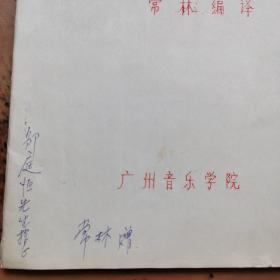 常林编译
广州音乐学院
邹庭恒先生指正
常林赠